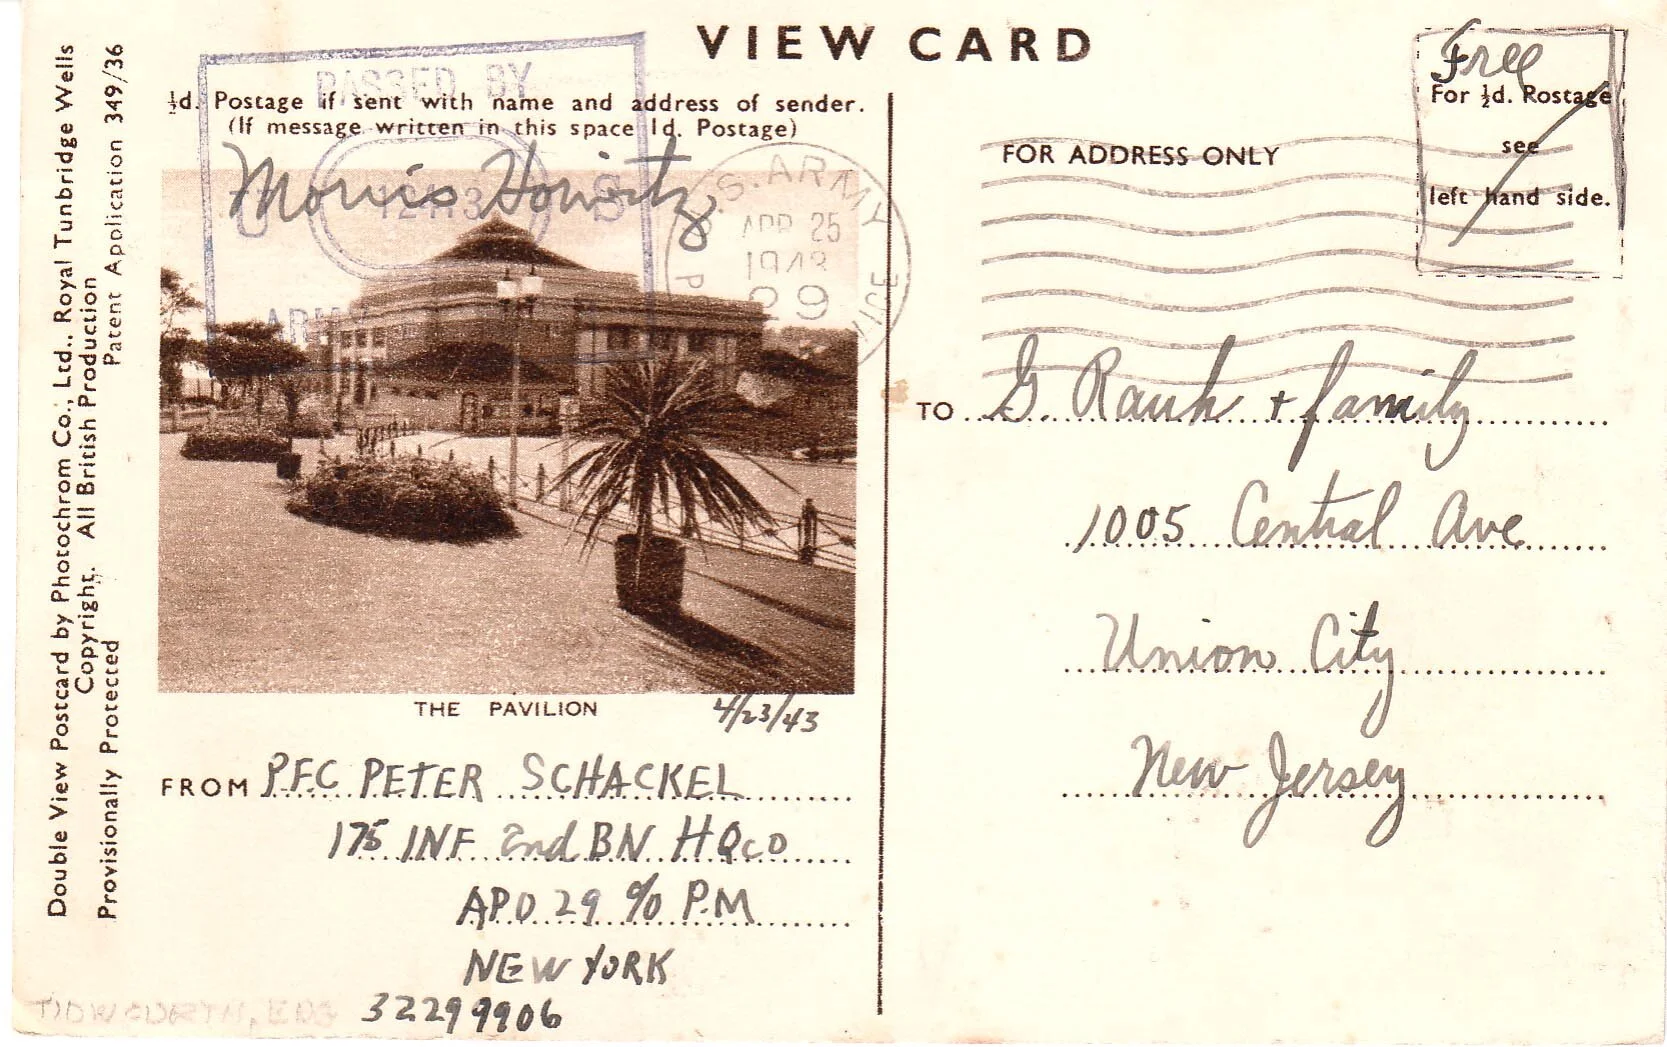 VIEW CARD
Double View Postcard by Photochrom Co., Ltd., Royal Tunbridge Wells
Copyright. All British Production
Provisionally Protected Patent Application 349/36
PASSED BY
½d. Postage if sent with name and address of sender.
(If message written in this space 1d. Postage)
Morris Howitz
U S
ARMY
U.S. ARMY
APR 25
1943
29
THE PAVILION
4/23/43
FROM P.F.C PETER SCHACKEL
175 INF 2nd BN HQ CO
APO 29 c/o P.M
NEW YORK
32299906
TIDWORTH, ENG
Free
For ½d. Postage
see
left hand side.
FOR ADDRESS ONLY
TO G. Rauh + family
1005 Central Ave
Union City
New Jersey